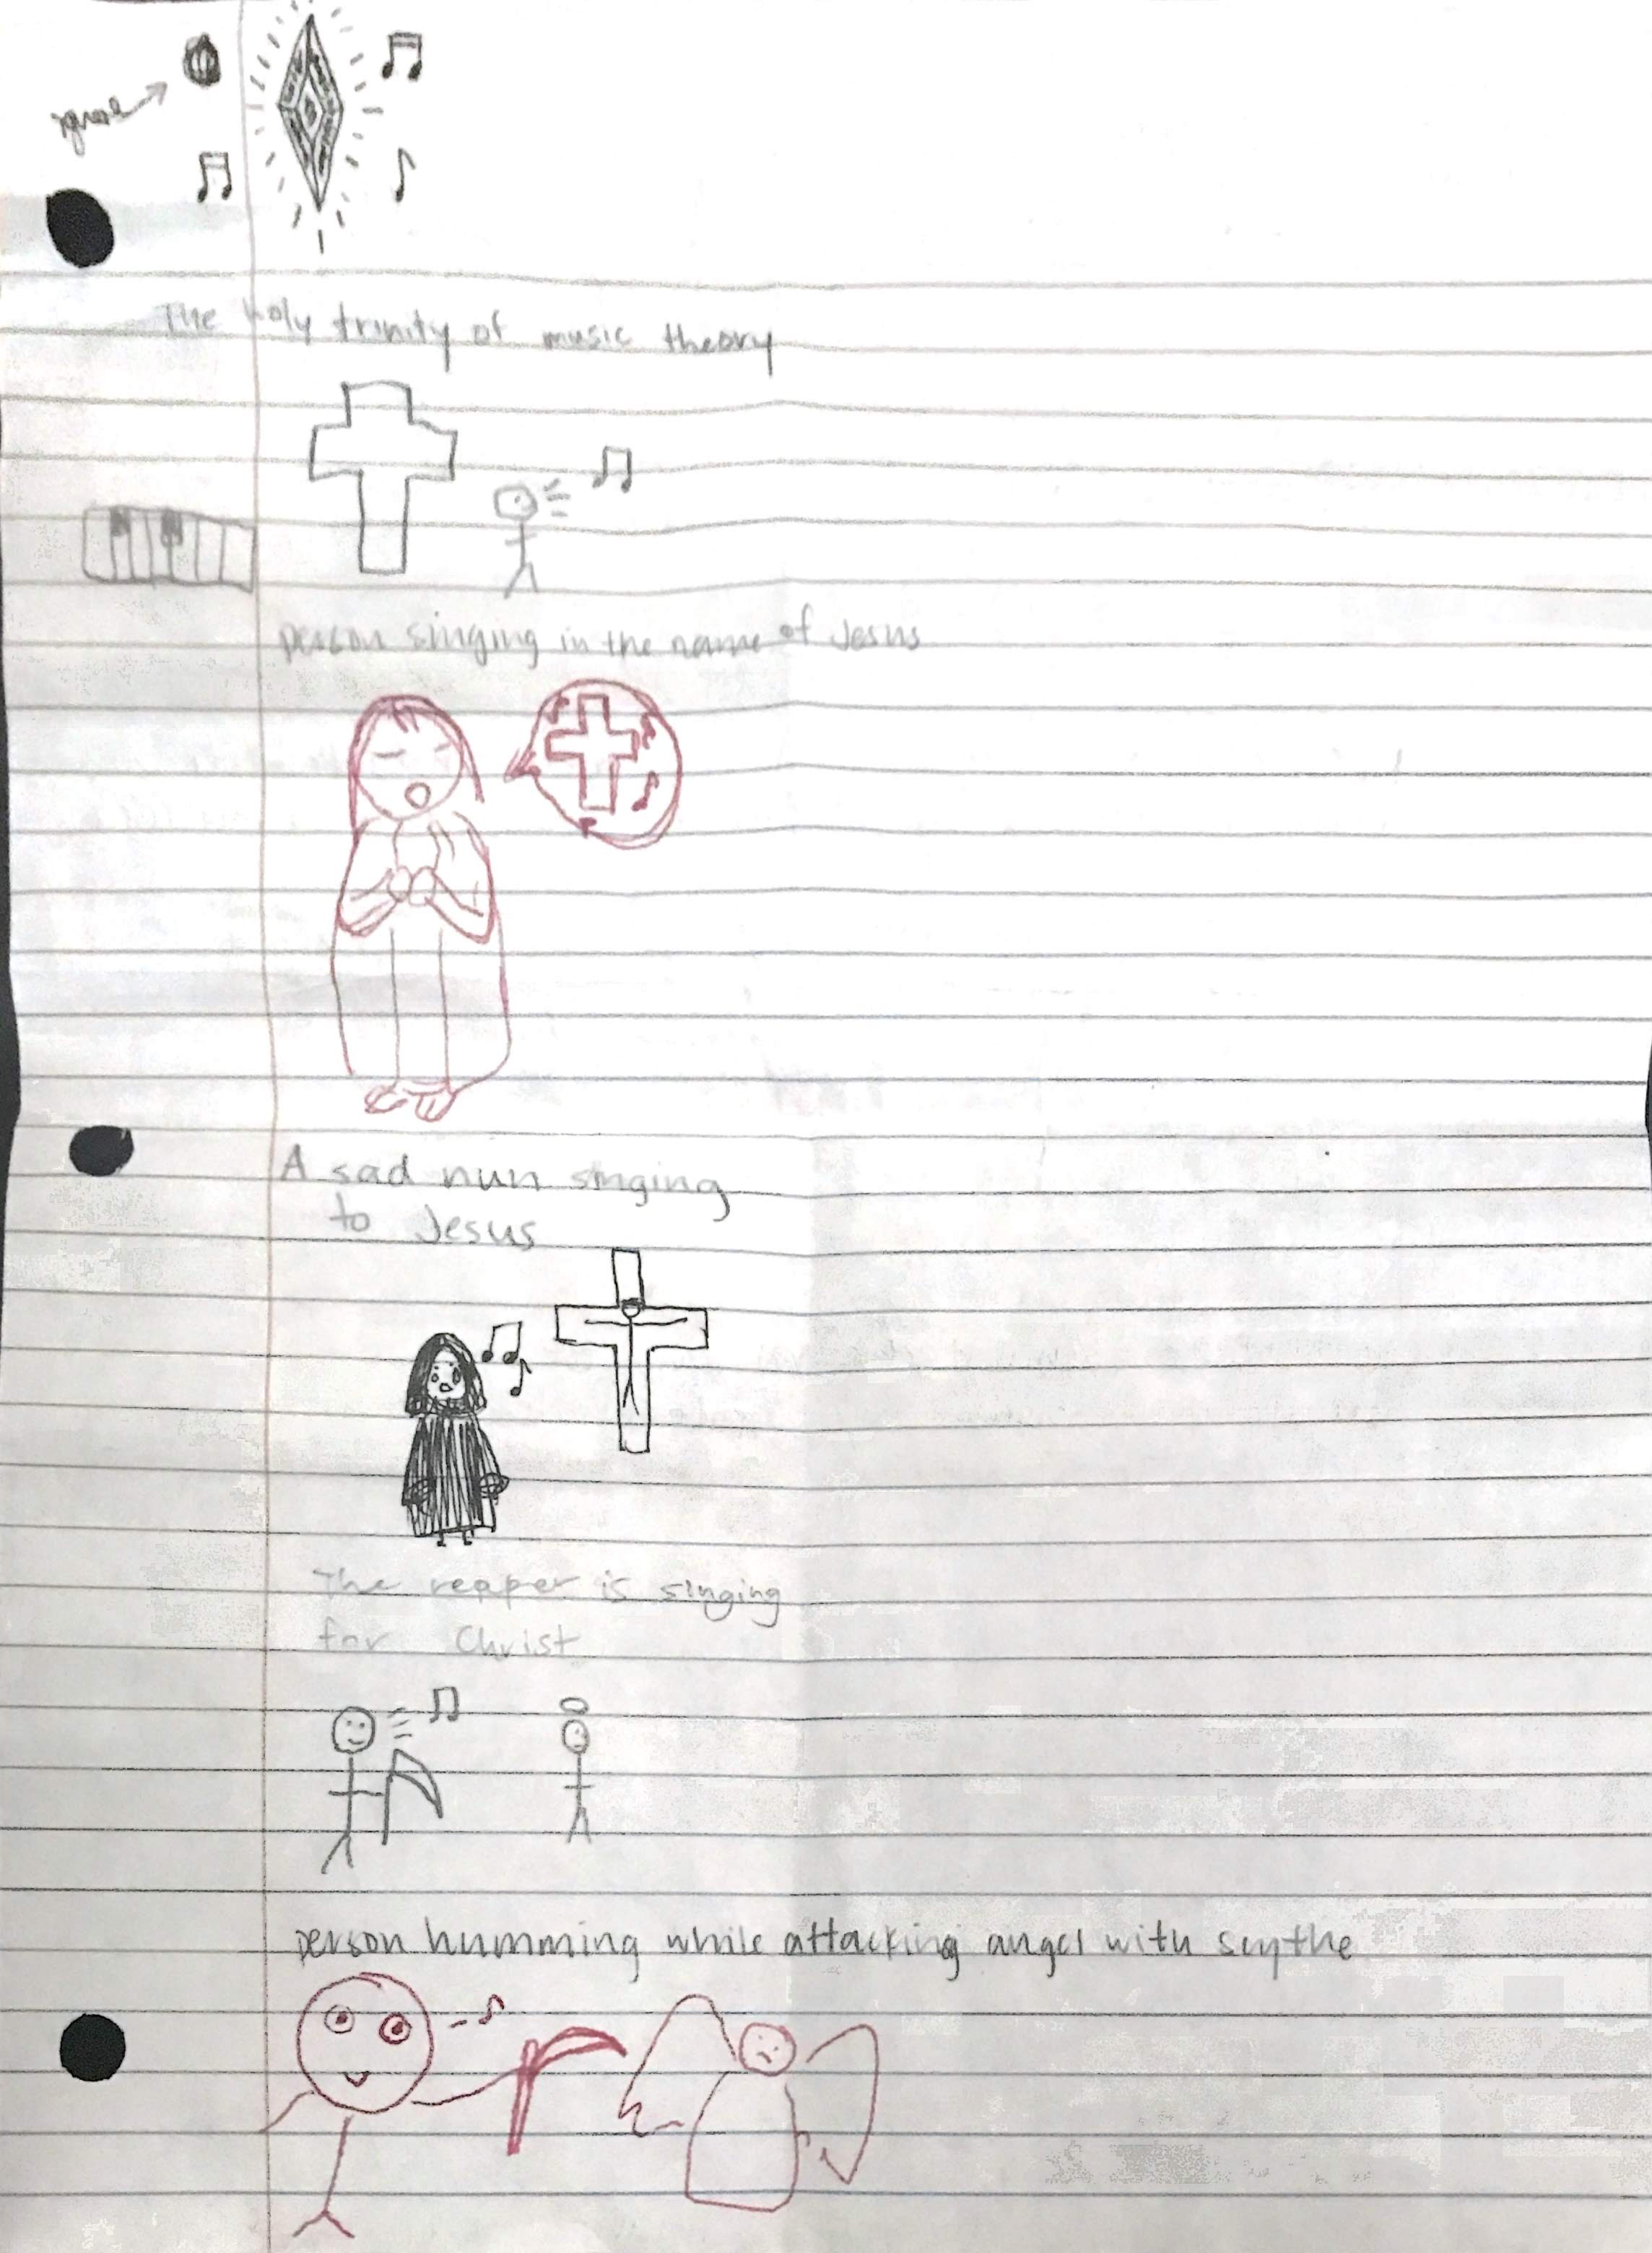 ignore
The holy trinity of music theory
person singing in the name of Jesus
A sad nun singing
to Jesus
The reaper is singing
for Christ
person humming while attacking angel with scythe